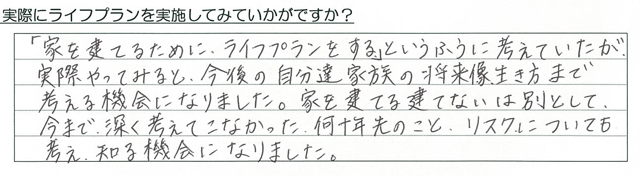 実際にライフプランを実施してみていかがですか？
「家を建てるために、ライフプランをする」というふうに考えていたが、
実際やってみると、今後の自分達家族の将来像生き方まで
考える機会になりました。家を建てる建てないは別として、
今まで、深く考えてこなかった、何十年先のこと、リスクについても
考え、知る機会になりました。